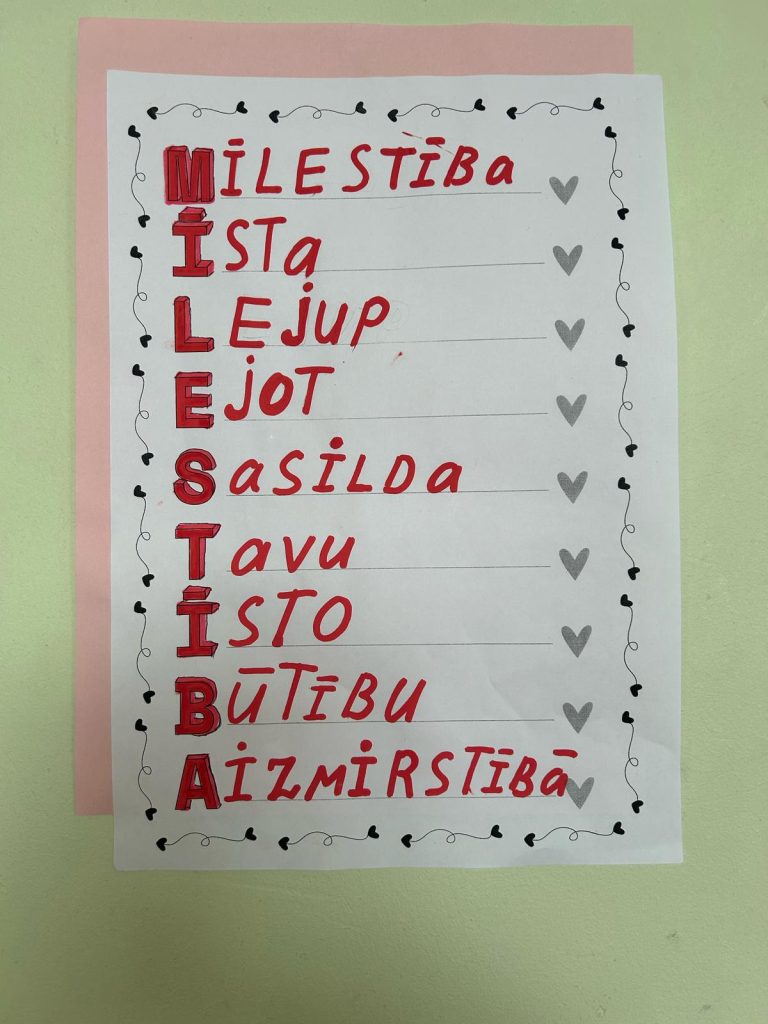 MĪLESTĪBa
ĪSTa
LEjUP
EjOT
SaSiLDa
Tavu
ĪSTO
BŪTĪBU
AiZMiRSTĪBā